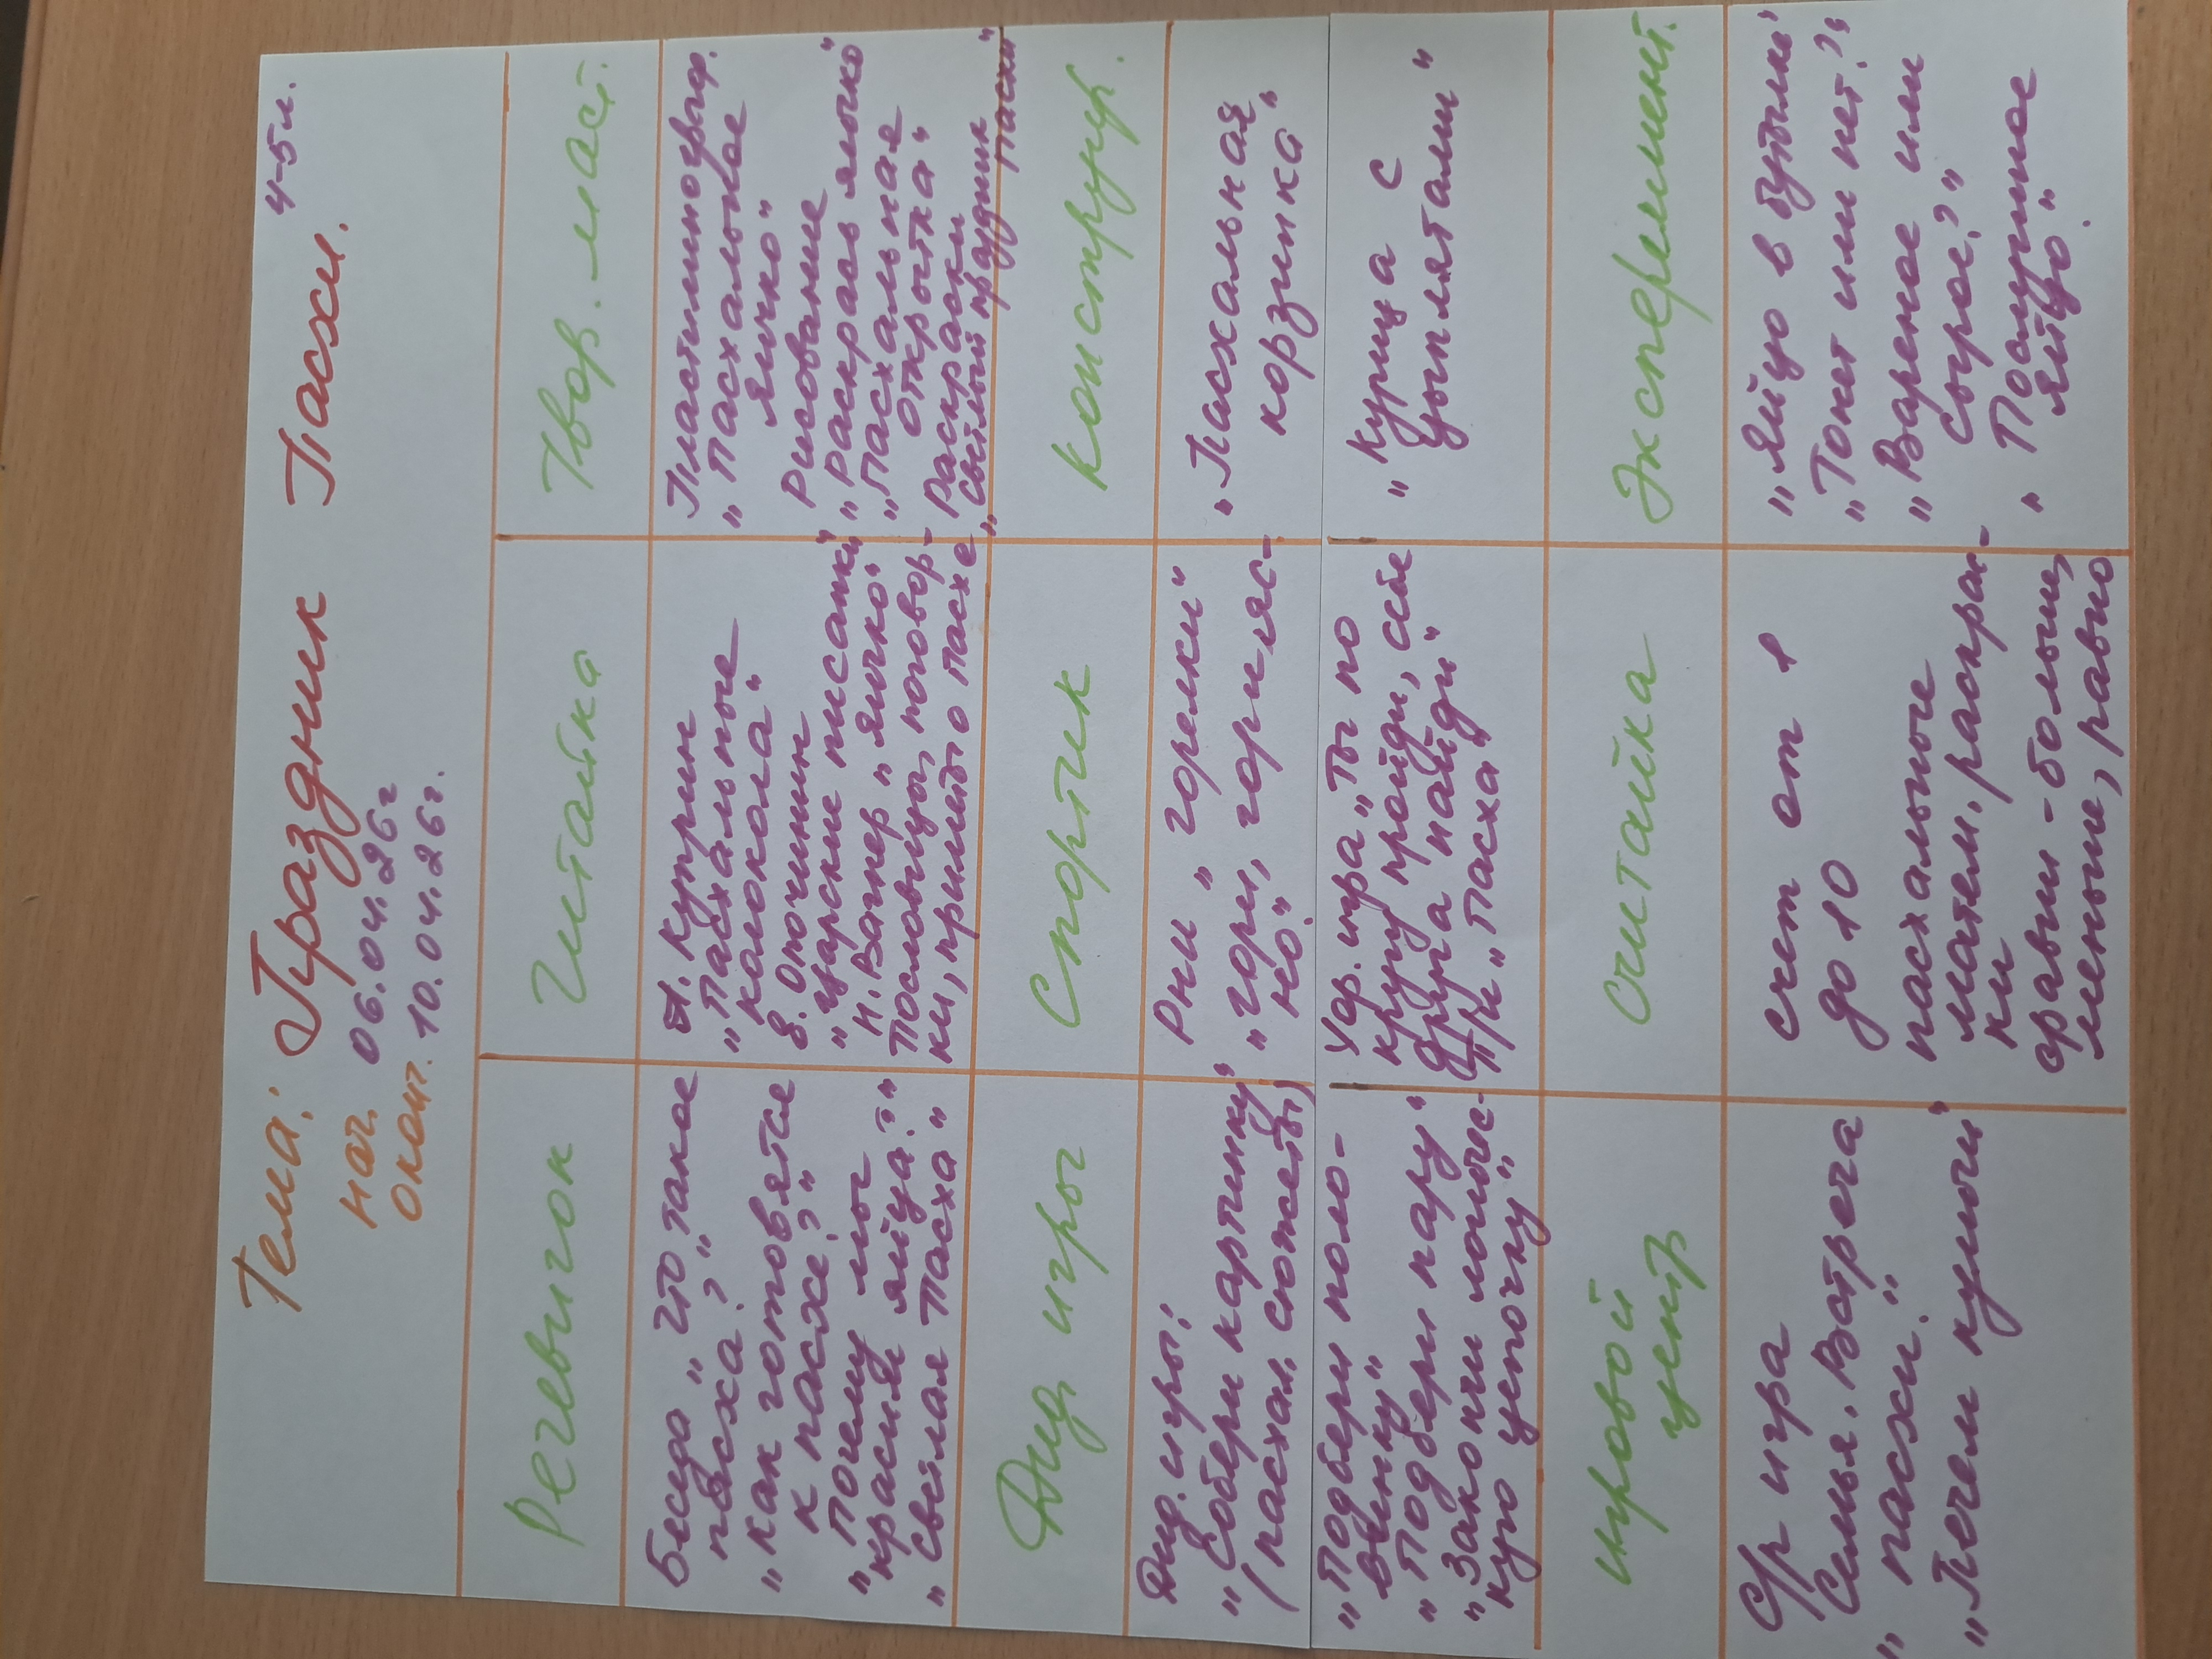 Тема: Праздник Пасхи. 4-5л.
нач. 06.04.26г
оконч. 10.04.26г.
Речевичок
Беседа „Что такое
пасха?"
„Как готовятся
к пасхе?"
„Почему мы
красим яйца?"
„Светлая Пасха"
Читайка
А. Куприн
„Пасхальные
колокола"
Е. Опочинин
„Царские писанки"
Н. Вагнер „Яичко"
Пословицы, поговор-
ки, приметы о пасхе
Твор. маст.
Пластилинограф.
„Пасхальное
яичко"
Рисование
„Раскрась яичко"
„Пасхальная
открытка"
Раскраски
„Светлый праздник Пасхи"
Дид. игры
Дид. игры:
„Собери картинку"
(пасхал. сюжеты)
„Подбери поло-
винку"
„Подбери пару"
„Закончи логичес-
кую цепочку"
Спортик
Рни „Горелки"
„Гори, гори яс-
но"
Хор. игра „Ты по
кругу пройди, себе
друга найди"
П/и „Пасха"
констр.
„Пасхальная
корзинка"
„Курица с
цыплятами"
игровой
центр
С/р игра
„Семья. Встреча
пасхи."
„Печем куличи"
Считайка
счет от 1
до 10
пасхальные
матем. раскрас-
ки
сравни - больше,
меньше, равно
Эксперимент.
„Яйцо в бутылке"
„Тонет или нет?"
„Вареное или
сырое?"
„Послушное
яйцо."